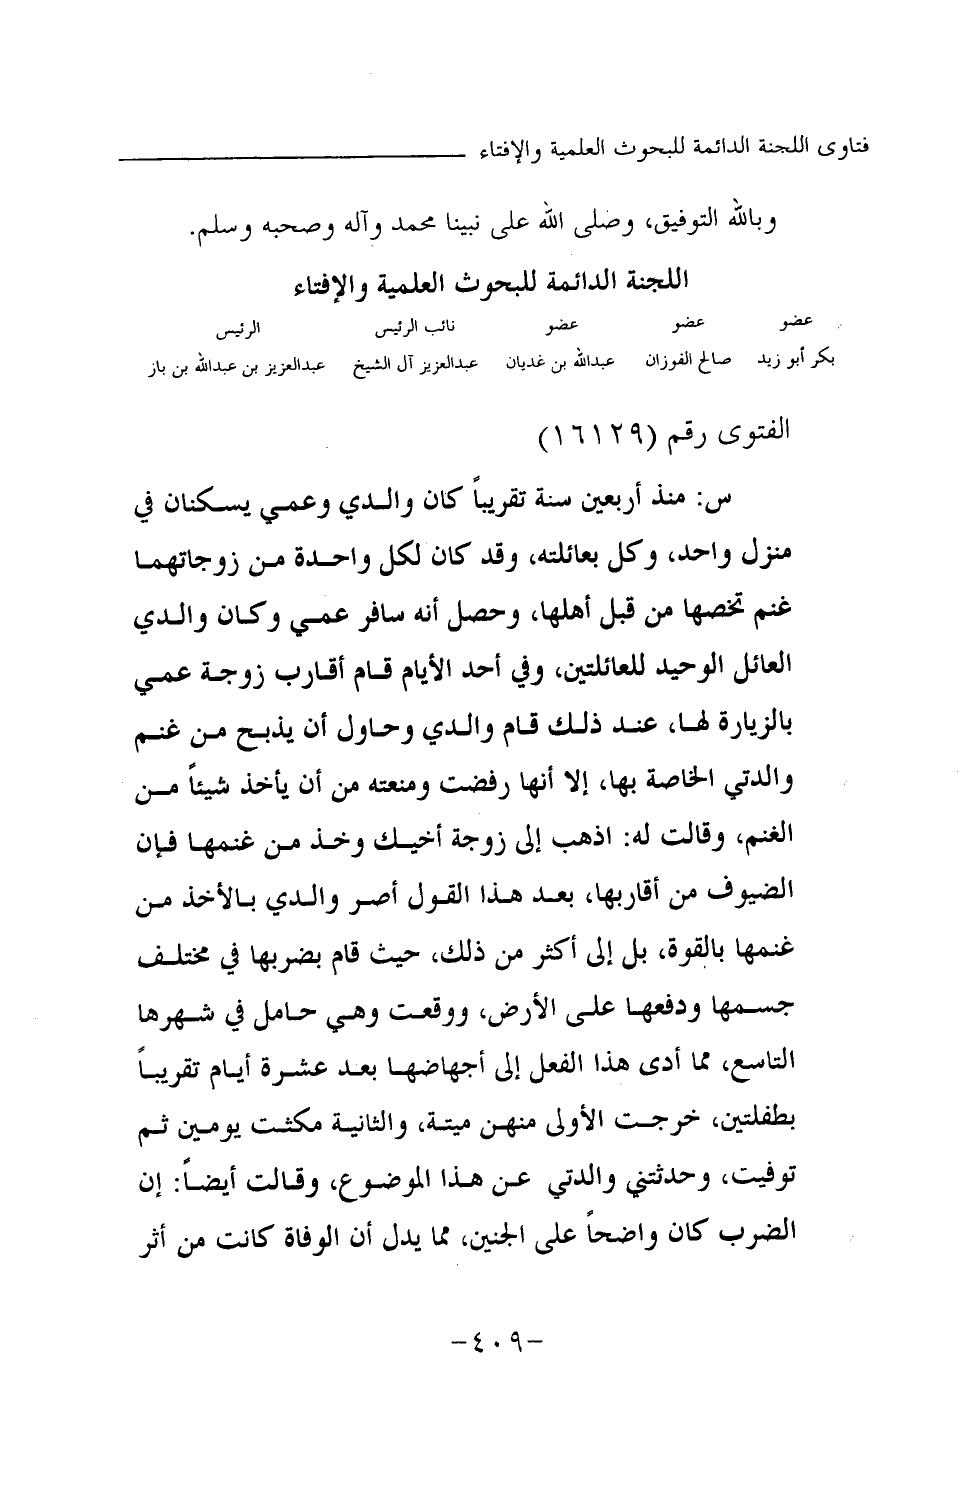 فتاوى اللجنة الدائمة للبحوث العلمية والإفتاء
وبالله التوفيق، وصلى الله على نبينا محمد وآله وصحبه وسلم.
اللجنة الدائمة للبحوث العلمية والإفتاء
عضو عضو عضو نائب الرئيس الرئيس
بكر أبو زيد صالح الفوزان عبدالله بن غديان عبدالعزيز آل الشيخ عبدالعزيز بن عبدالله بن باز
الفتوى رقم (١٦١٢٩)
س: منذ أربعين سنة تقريباً كان والدي وعمي يسكنان في
منزل واحد، وكل بعائلته، وقد كان لكل واحدة من زوجاتهما
غنم تخصها من قبل أهلها، وحصل أنه سافر عمي وكان والدي
العائل الوحيد للعائلتين، وفي أحد الأيام قام أقارب زوجة عمي
بالزيارة لها، عند ذلك قام والدي وحاول أن يذبح من غنم
والدتي الخاصة بها، إلا أنها رفضت ومنعته من أن يأخذ شيئاً من
الغنم، وقالت له: اذهب إلى زوجة أخيك وخذ من غنمها فإن
الضيوف من أقاربها، بعد هذا القول أصر والدي بالأخذ من
غنمها بالقوة، بل إلى أكثر من ذلك، حيث قام بضربها في مختلف
جسمها ودفعها على الأرض، ووقعت وهي حامل في شهرها
التاسع، مما أدى هذا الفعل إلى أجهاضها بعد عشرة أيام تقريباً
بطفلتين، خرجت الأولى منهن ميتة، والثانية مكثت يومين ثم
توفيت، وحدثتني والدتي عن هذا الموضوع، وقالت أيضاً: إن
الضرب كان واضحاً على الجنين، مما يدل أن الوفاة كانت من أثر
-٤٠٩-